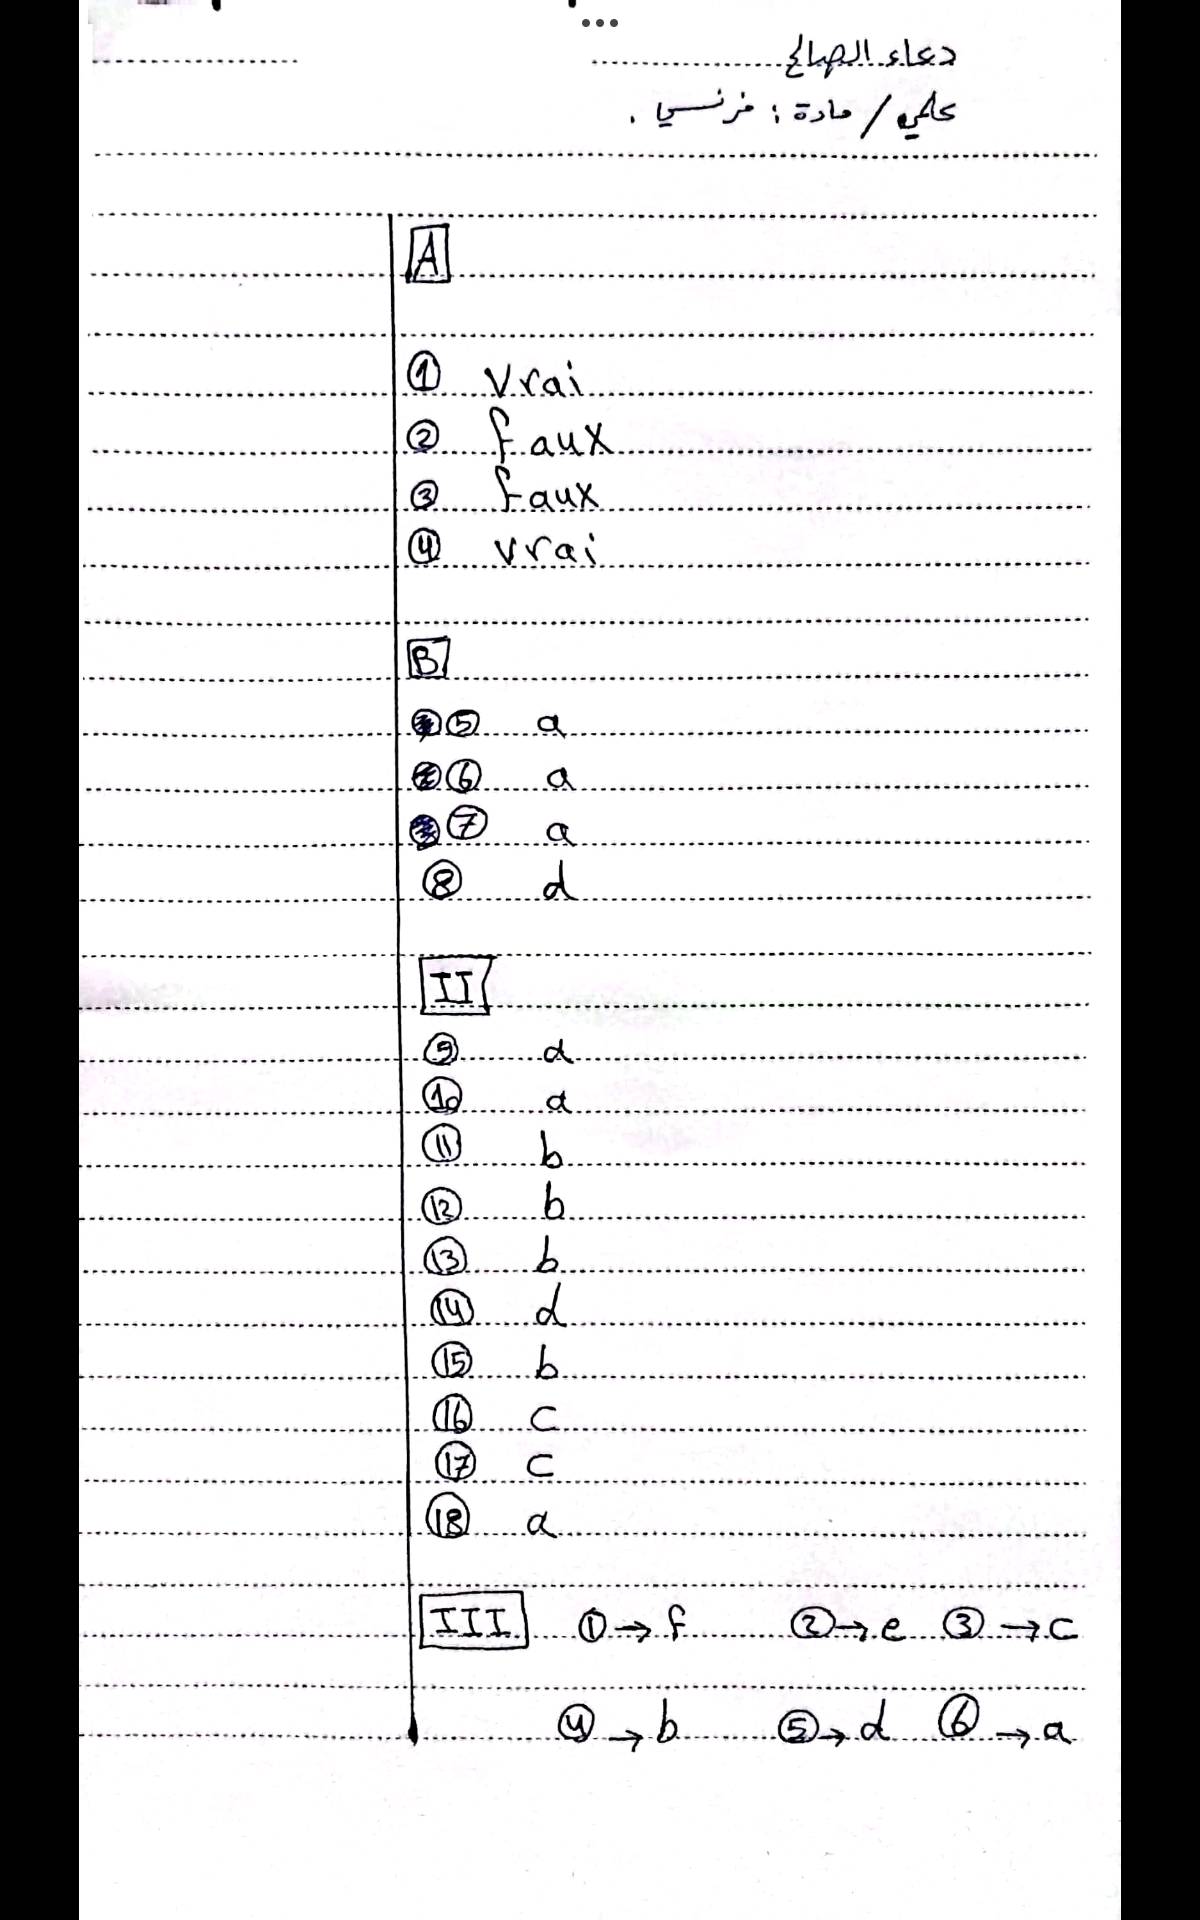 دعاء الصالح
علمي / مادة : فرنسي .
A
① vrai
② faux
③ faux
④ vrai
B
⑤ a
⑥ a
⑦ a
⑧ d
II
⑨ d
⑩ a
⑪ b
⑫ b
⑬ b
⑭ d
⑮ b
⑯ c
⑰ c
⑱ a
III ① → f ② → e ③ → c
④ → b ⑤ → d ⑥ → a